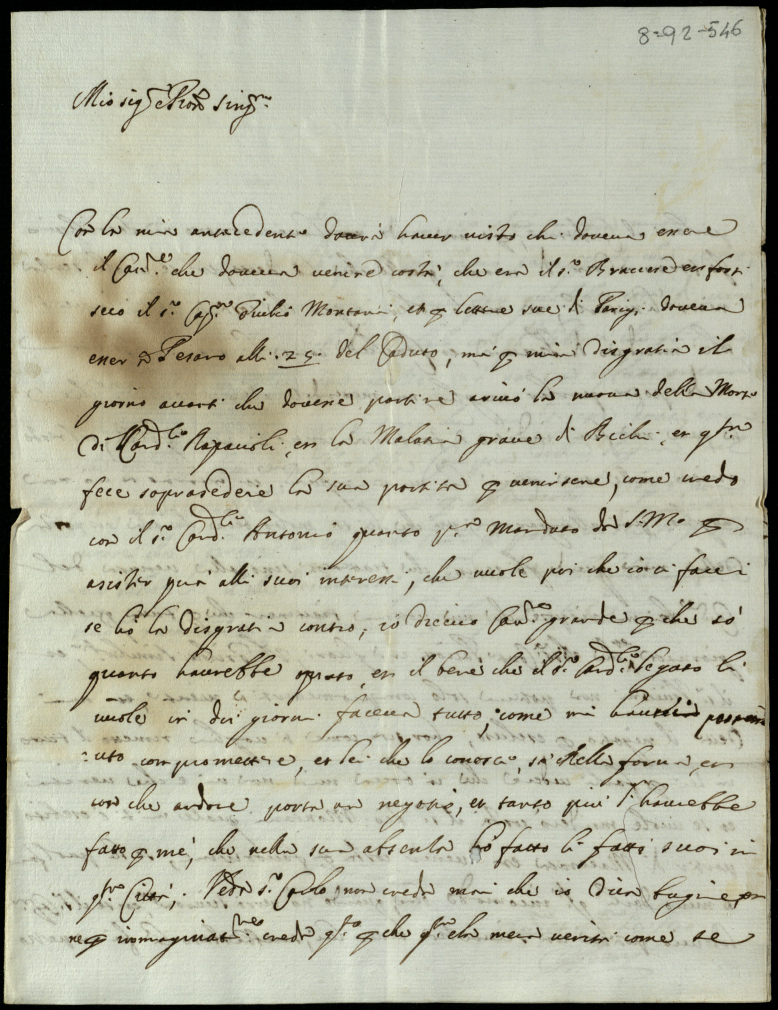 8-92-546
Mio sig.re e Pron. sing.mo
Con la mia antecedente dourà hauer uisto chi doueua essere
il Cau.re che doueua uenire costà, che era il s.r Bracciere
seco il s.r Giulio Montani, et p lettere sue di Parigi doueua
esser a Pesaro alli 25 del Caduto, mà p mia disgratia il
giorno auanti che douesse partire ariuò la nuoua della Morte
di Card.le Rapacioli, et la Malatia graue di Bichi, et q.sta
fece soprasedere la sua partita p uenirsene, come credo
con il s.r Card.le Antonio quanto p.ma Mandato da S. M. p
asister purà alli suoi interessi, che uuole poi che io ci facci
se hò la disgratia contro, io diceuo Cau.re grande p che sò
quanto haurebbe, et il bene che il s.r Card.le Legato li
uuole in dui giorni faceua tutto, come mi
-uto compromettere, et lei che lo conosce, sà della forma, et
con che ardore porta un negotio, et tanto più l'haurebbe
fatto p me, che nella sua absenza hò fatto li fatti suoi in
q.sta Città; Veda s.r Carlo non creda mai che io dica bugie
ne p creda q.to p che q.sta è la mera uerità come se